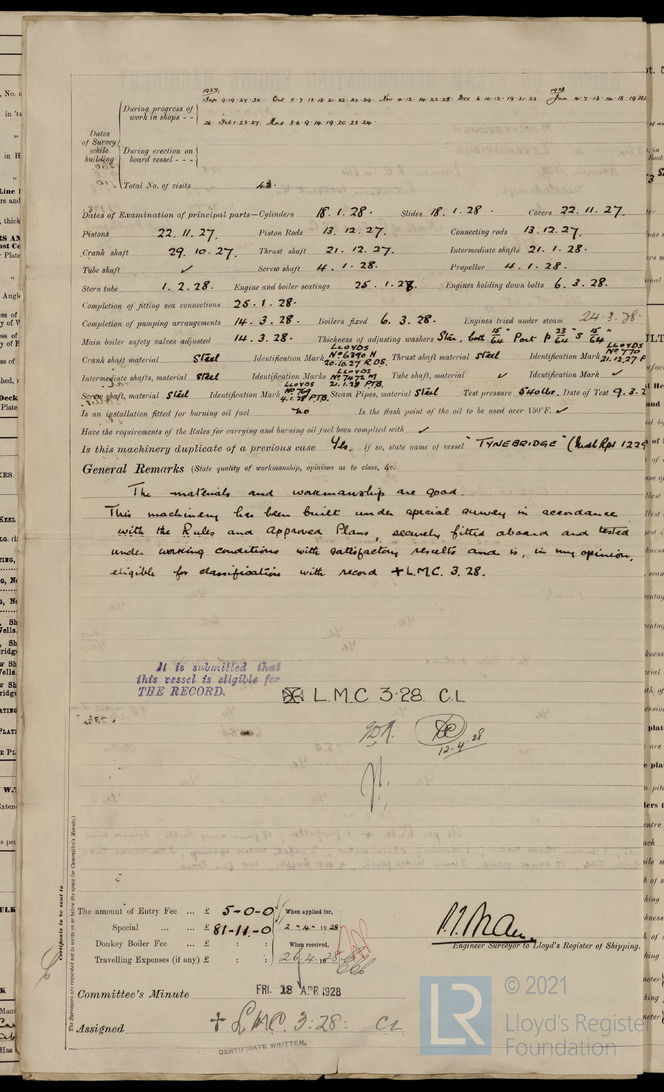 1927 1928
During progress of work in shops - - Sep 9.19.27.30. Oct 5.7.12.13.21.22.27.29. Nov 4.12.14.22.28. Dec 6.10.13.19.21.22 Jan 4.7.13.14.18.19
Dates of Survey while building
During erection on board vessel - - - Feb 1.23.27. Mar 3.6.9.14.19.20.23.24.
Total No. of visits 43.
Dates of Examination of principal parts—Cylinders 18.1.28. Slides 18.1.28. Covers 22.11.27.
Pistons 22.11.27. Piston Rods 13.12.27. Connecting rods 13.12.27.
Crank shaft 29.10.27. Thrust shaft 21.12.27. Intermediate shafts 21.1.28.
Tube shaft ✓ Screw shaft 4.1.28. Propeller 4.1.28.
Stern tube 1.2.28. Engine and boiler seatings 25.1.28. Engines holding down bolts 6.3.28.
Completion of fitting sea connections 25.1.28.
Completion of pumping arrangements 14.3.28. Boilers fixed 6.3.28. Engines tried under steam 24.3.28.
Main boiler safety valves adjusted 14.3.28. Thickness of adjusting washers
Crank shaft material Steel Identification Mark LLOYDS No 6390 H 20.10.27 RDS. Thrust shaft material Steel Identification Mark LLOYDS No 770 21.12.27 P
Intermediate shafts, material Steel Identification Marks LLOYDS No 7672 M 21.1.28 PTB. Tube shaft, material ✓ Identification Mark ✓
Screw shaft, material Steel Identification Mark LLOYDS No 769 4.1.28 PTB. Steam Pipes, material Steel Test pressure 540 lbs. Date of Test 9.3.2
Is an installation fitted for burning oil fuel no Is the flash point of the oil to be used over 150°F. ✓
Have the requirements of the Rules for carrying and burning oil fuel been complied with ✓
Is this machinery duplicate of a previous case Yes. If so, state name of vessel "TYNEBRIDGE" (Midl Rpt 1229
General Remarks (State quality of workmanship, opinions as to class, &c.
The materials and workmanship are good.
This machinery has been built under special survey in accordance
with the Rules and Approved Plans, securely fitted aboard and tested
under working conditions with satisfactory results and is, in my opinion,
eligible for classification with record ✠ L.M.C. 3.28.
It is submitted that
this vessel is eligible for
THE RECORD.
✠ L.M.C 3.28. C.L
12-4-28
Certificate to be sent to
The Surveyors are requested not to write on or below the space for Committee's Minute.
The amount of Entry Fee ... £ 5-0-0 When applied for,
Special ... £ 81-11-0 2-4-1928
Donkey Boiler Fee ... £ : : When received,
Travelling Expenses (if any) £ : : 26.4.1928
Engineer Surveyor to Lloyd's Register of Shipping.
Committee's Minute FRI. 13 APR 1928
Assigned + LMC 3.28. CL
CERTIFICATE WRITTEN.
LR
© 2021
Lloyd's Register
Foundation